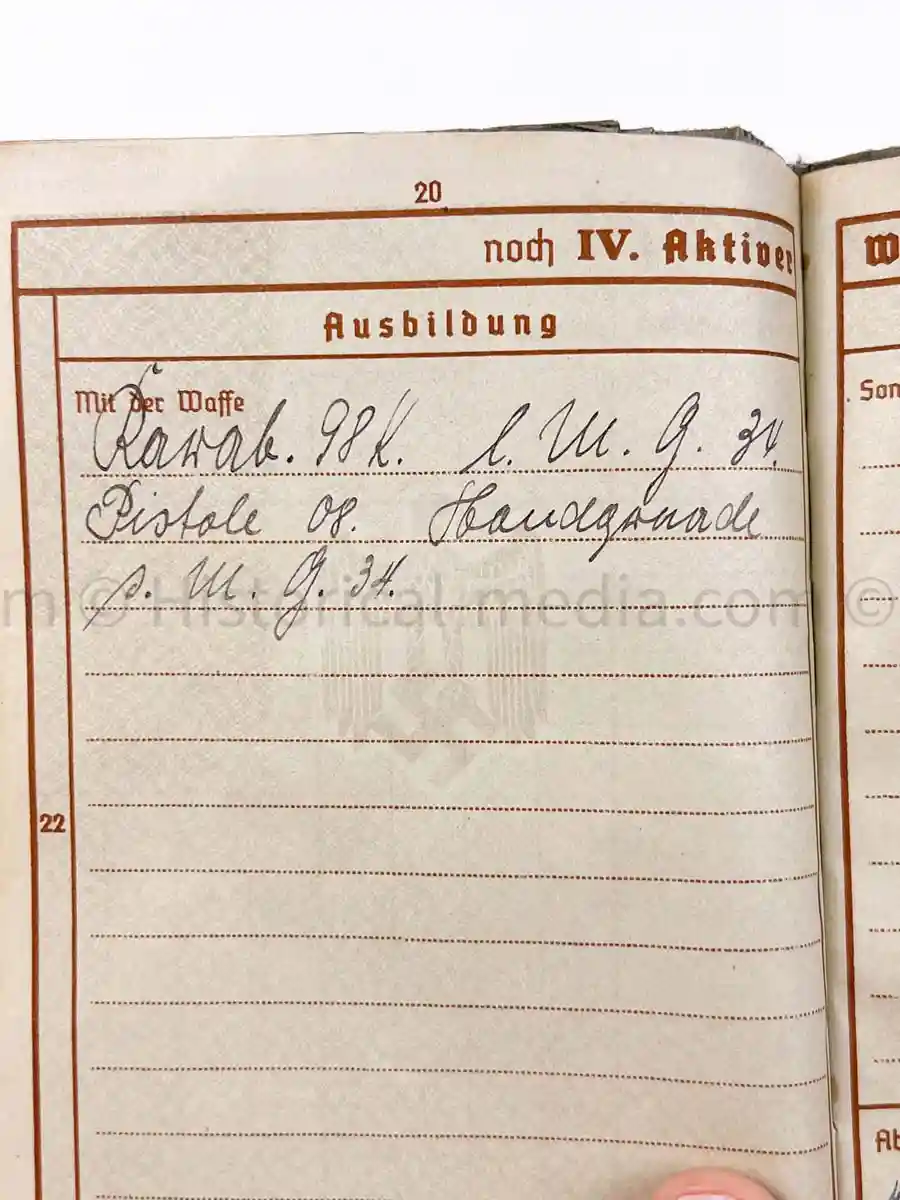 20
noch IV. Aktiver
W
Ausbildung
Mit der Waffe
Son
Karab. 98 K. l. M. G. 34.
Pistole 08. Handgranade
s. M. G. 34.
m © Historical-media.com ©
22
Ab